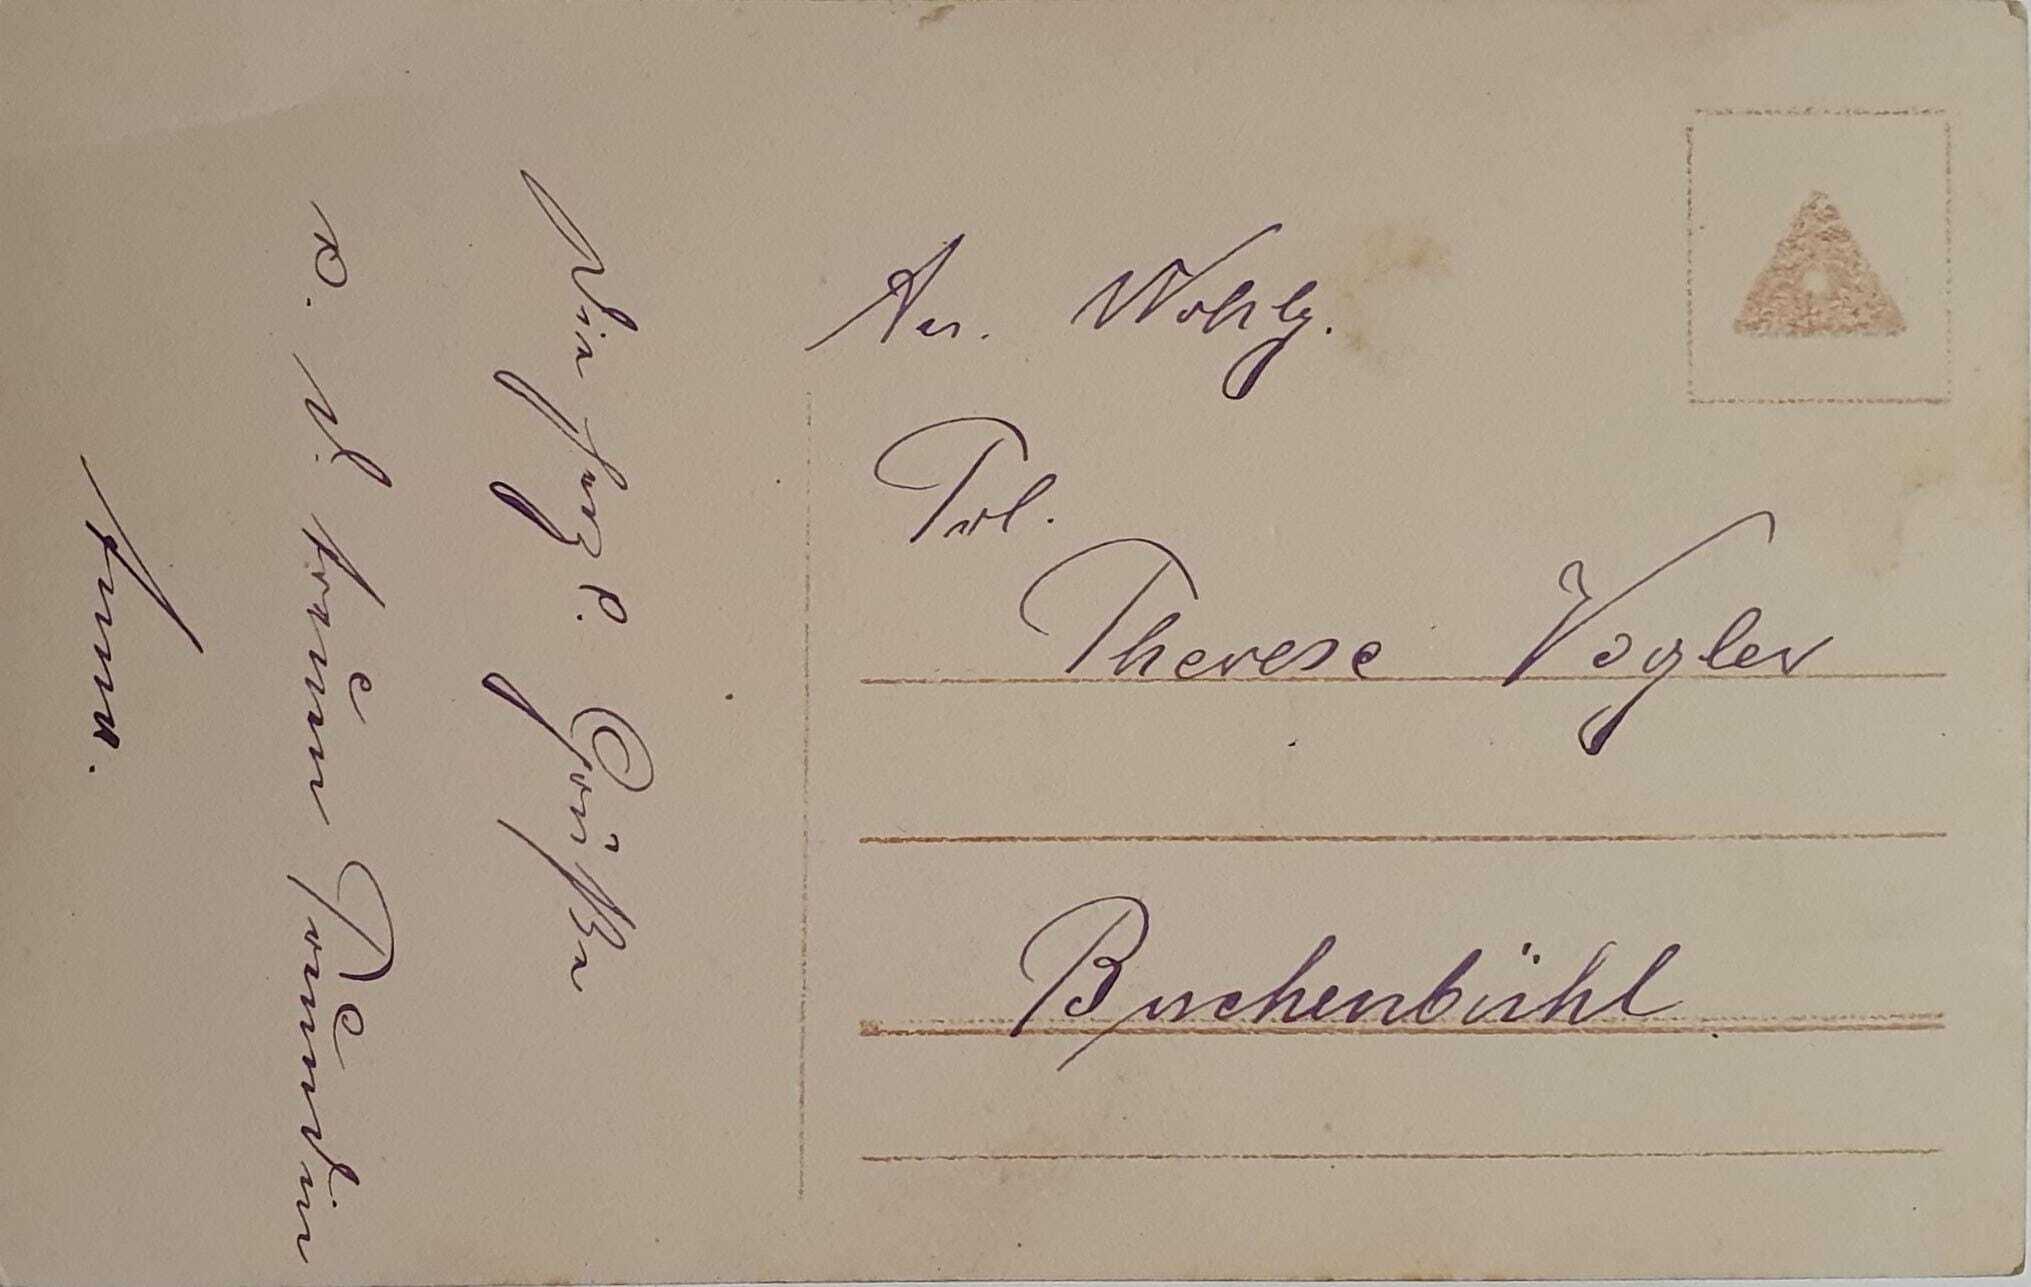 Die herzl. Grüßen
v. d. treuen Freundin
Anna.
An. Wohlg.
Frl.
Therese Vogler
Buchenbühl